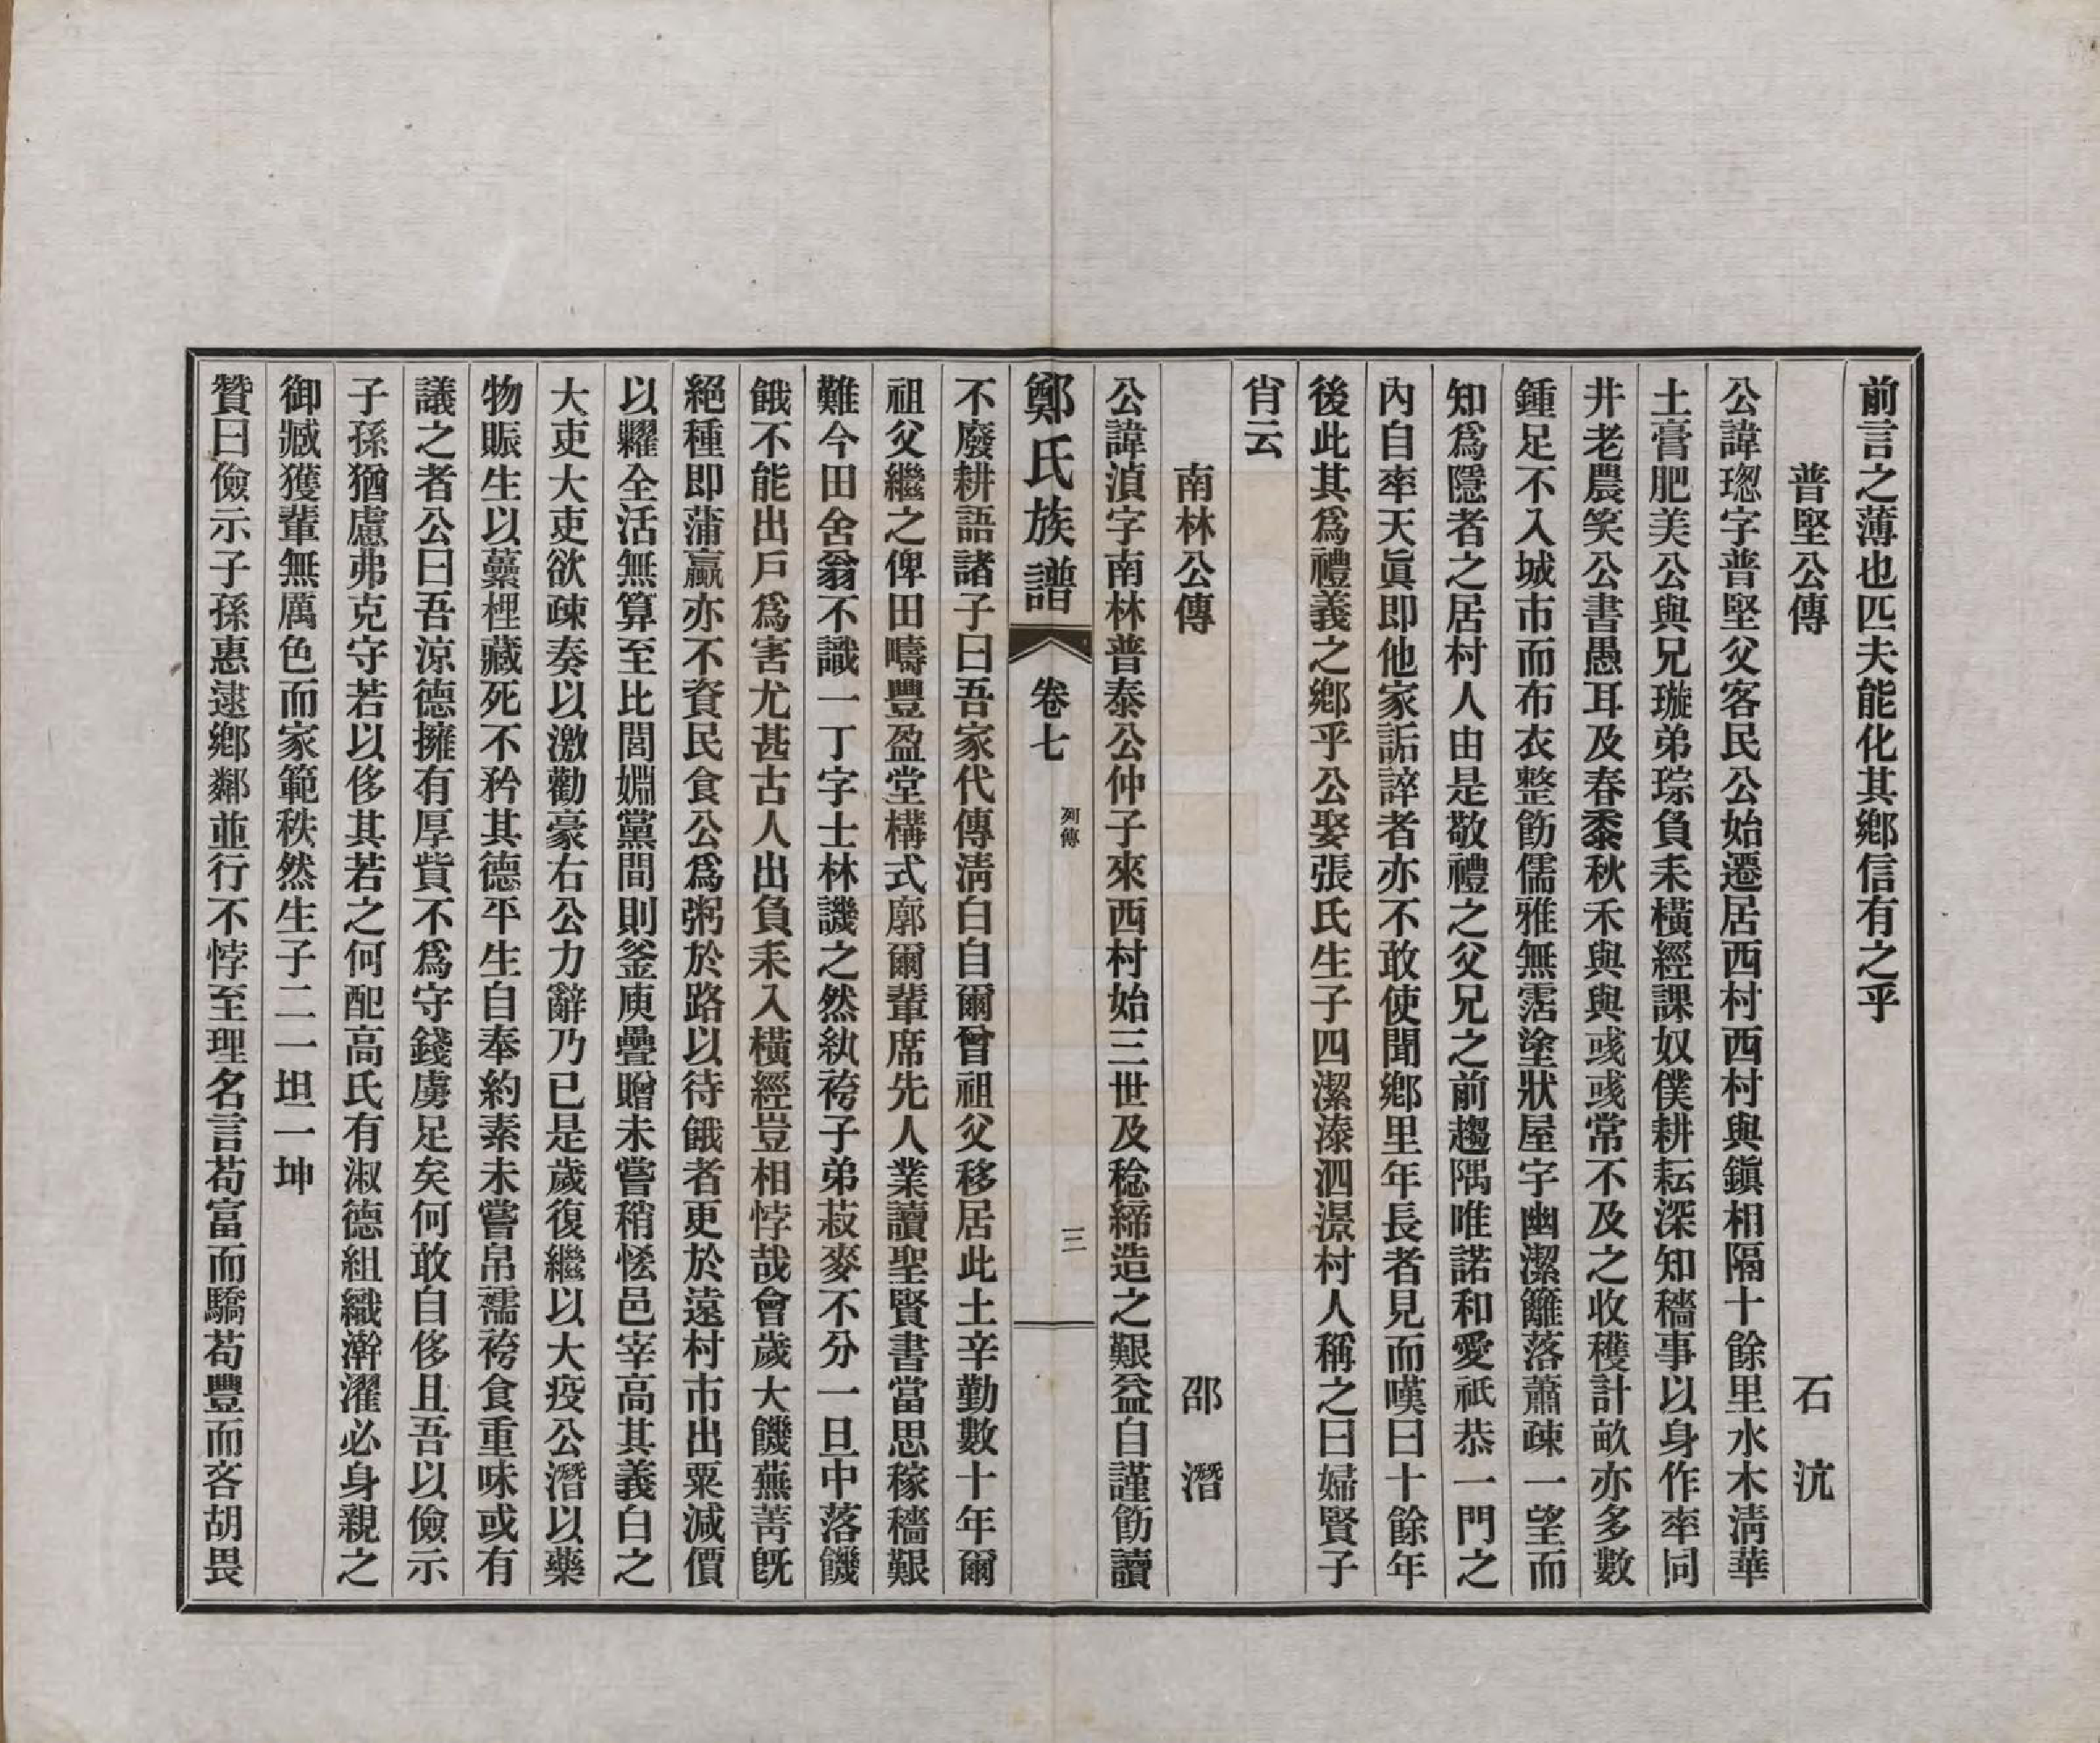 前言之薄也匹夫能化其鄕信有之乎
普堅公傳　石沆
公諱璁字普堅父客民公始遷居西村西村與鎭相隔十餘里水木淸華
土膏肥美公與兄璇弟琮負耒橫經課奴僕耕耘深知穡事以身作率同
井老農笑公書愚耳及春黍秋禾與與彧彧常不及之收穫計畝亦多數
鍾足不入城市而布衣整飭儒雅無霑塗狀屋宇幽潔籬落蕭疎一望而
知爲隱者之居村人由是敬禮之父兄之前趨隅唯諾和愛祇恭一門之
內自率天眞即他家詬誶者亦不敢使聞鄕里年長者見而嘆曰十餘年
後此其爲禮義之鄕乎公娶張氏生子四潔溱泗澋村人稱之曰婦賢子
肖云
南林公傳　邵潛
公諱湞字南林普泰公仲子來西村始三世及稔締造之艱益自謹飭讀
鄭氏族譜　卷七　列傳　三
不廢耕語諸子曰吾家代傳淸白自爾曾祖父移居此土辛勤數十年爾
祖父繼之俾田疇豐盈堂構式廓爾輩席先人業讀聖賢書當思稼穡艱
難今田舍翁不識一丁字士林譏之然紈袴子弟菽麥不分一旦中落饑
餓不能出戶爲害尤甚古人出負耒入橫經豈相悖哉會歲大饑蕪菁旣
絕種即蒲蠃亦不資民食公爲粥於路以待餓者更於遠村市出粟減價
以糶全活無算至比閭婣黨間則釜庾疊贈未嘗稍恡邑宰高其義白之
大吏大吏欲疎奏以激勸豪右公力辭乃已是歲復繼以大疫公潛以藥
物賑生以虆梩藏死不矜其德平生自奉約素未嘗帛襦袴食重味或有
議之者公曰吾涼德擁有厚貲不爲守錢虜足矣何敢自侈且吾以儉示
子孫猶慮弗克守若以侈其若之何配高氏有淑德組織澣濯必身親之
御臧獲輩無厲色而家範秩然生子二一坦一坤
贊曰儉示子孫惠逮鄕鄰並行不悖至理名言苟富而驕苟豐而吝胡畏